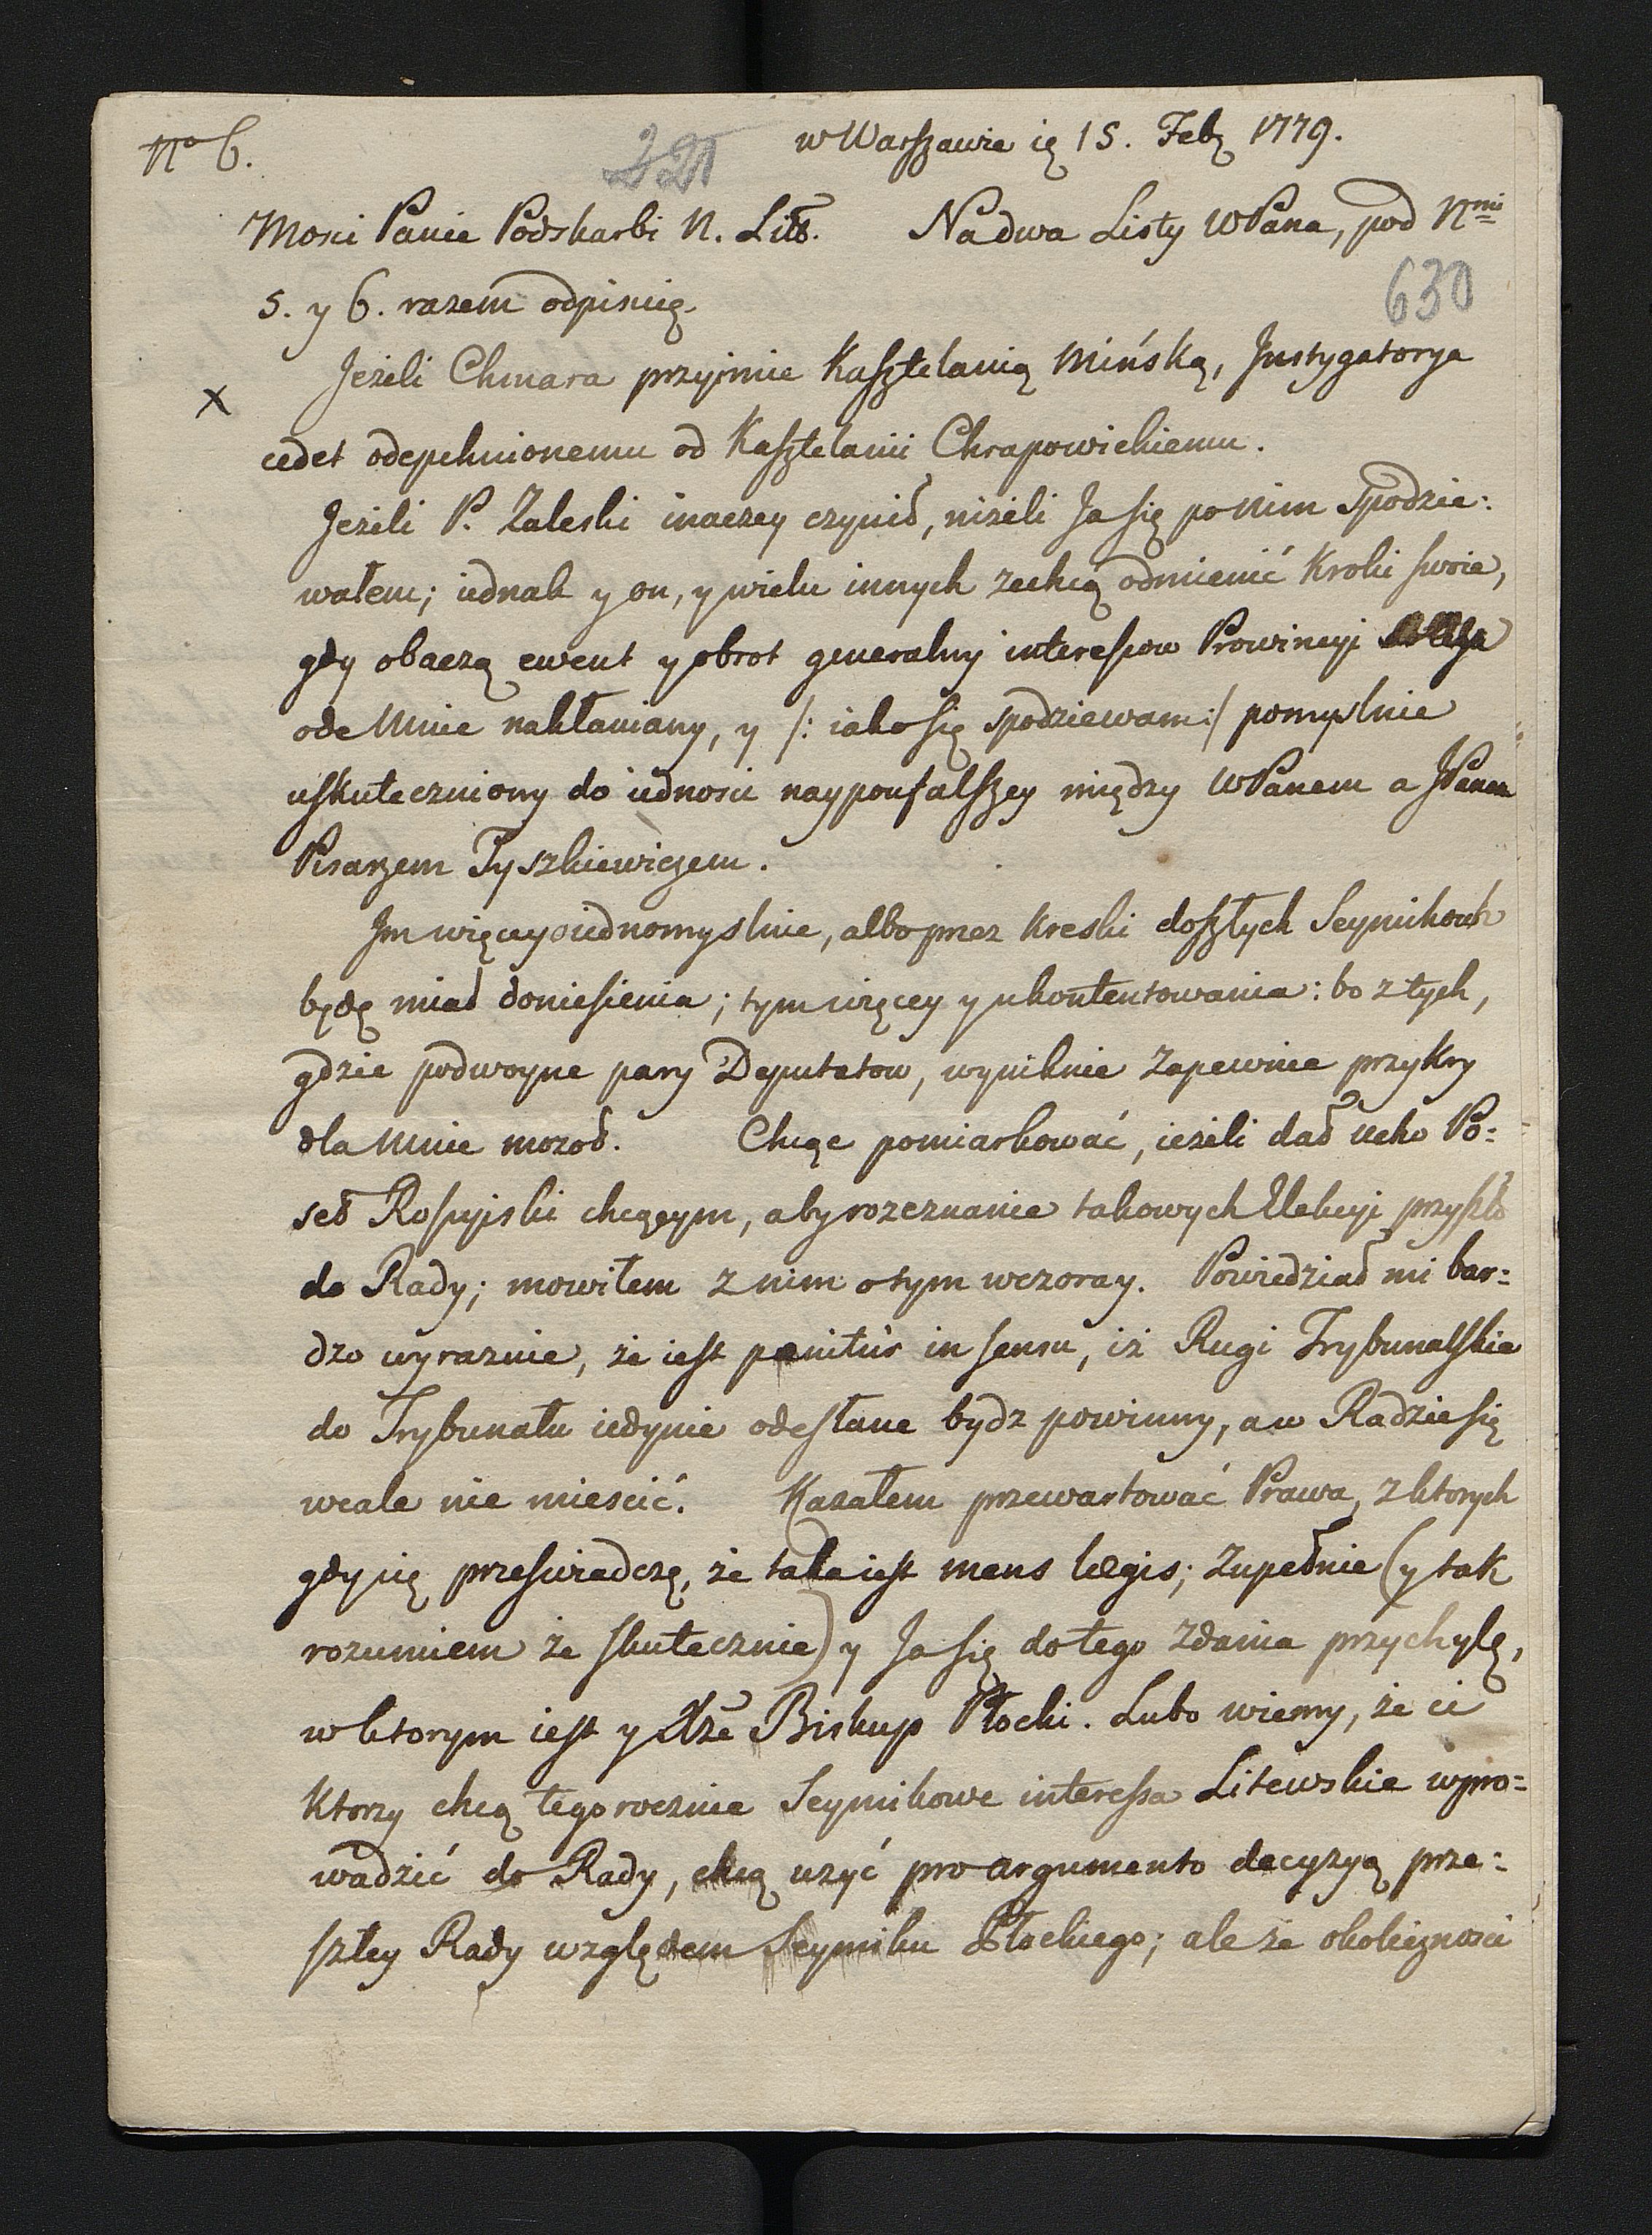 No 6.
221
w Warszawie ię 15. Febr 1779.
Mosci Panie Podskarbi N. Litt. Na dwa Listy WPana, pod Nmis
630
5. y 6. razem odpisuię.
x
Jeżeli Chmara przyimie Kasztelanią Mińską, Instygatorya
cedet odepchnionemu od Kasztelanii Chrapowickiemu.
Jeżeli P. Zaleski inaczey czynił, niżeli Ja się po nim spodzie:
wałem; iednak y on, y wielu innych zechcą odmienić Kroki swoie,
gdy obaczą ewent y obrot generalny interessow Prowincyi
ode Mnie nakłaniany, y /: iako się spodziewam :/ pomyslnie
uskuteczniony do iednosci naypoufalszey między WPanem a JPanem
Pisarzem Tyszkiewiczem.
Im więcey o iednomyslnie, albo przez Kreski doszłych Seymikach
będę miał doniesienia; tym więcey y ukontentowania: bo z tych,
gdzie podwoyne pary Deputatow, wyniknie zapewnie przykry
dla Mnie mozoł. Chcąc pomiarkować, ieżeli dał ucho Po:
seł Rossyiski chcącym, aby rozeznanie takowych Elekcyi przyszło
do Rady; mowiłem z nim o tym wczoray. Powiedział mi bar:
dzo wyraznie, że iest penitus in sensu, iż Rugi Trybunalskie
do Trybunału iedynie odesłane bydz powinny, a w Radzie się
wcale nie miescić. Kazałem przewartować Prawa, z ktorych
gdy się przeswiadczę, że taka iest mens legis; zupełnie (y tak
rozumiem że skutecznie) y Ja się do tego zdania przychylę,
w ktorym iest y Xże Biskup Płocki. Lubo wiemy, że ci
Ktorzy chcą tegoroczne Seymikowe interessa Litewskie wpro:
wadzić do Rady, chcą użyć pro argumento decyzyą prze:
szłey Rady względem Seymiku Płockiego; ale że okolicznosci